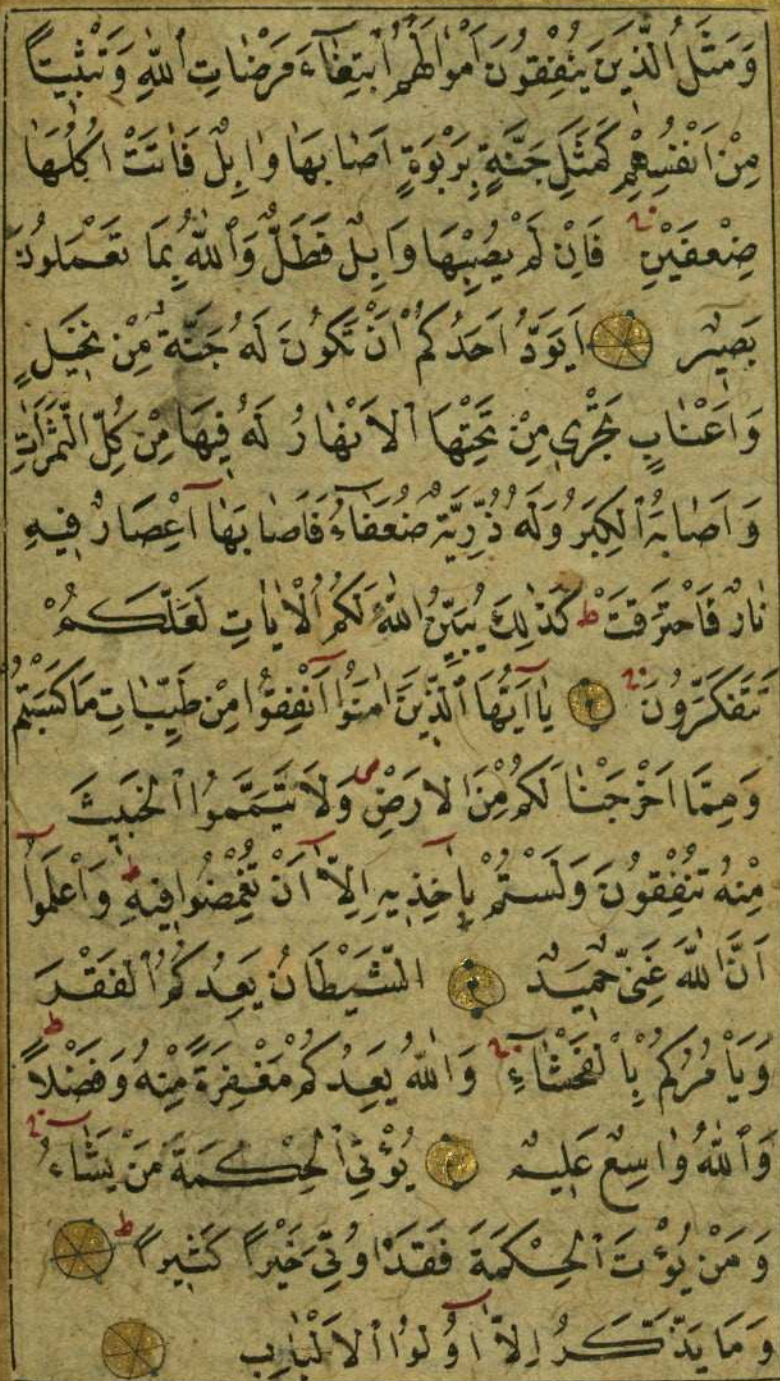 وَمَثَلُ الَّذِينَ يُنْفِقُونَ اَمْوَالَهُمُ ابْتِغَاءَ مَرْضَاتِ اللّٰهِ وَتَثْبِيتًا
مِنْ اَنْفُسِهِمْ كَمَثَلِ جَنَّةٍ بِرَبْوَةٍ اَصَابَهَا وَابِلٌ فَاٰتَتْ اُكُلَهَا
ضِعْفَيْنِ ۚ فَاِنْ لَمْ يُصِبْهَا وَابِلٌ فَطَلٌّ وَاللّٰهُ بِمَا تَعْمَلُونَ
بَصِيرٌ ۝ اَيَوَدُّ اَحَدُكُمْ اَنْ تَكُونَ لَهُ جَنَّةٌ مِنْ نَخِيلٍ
وَاَعْنَابٍ تَجْرِى مِنْ تَحْتِهَا الْاَنْهَارُ لَهُ فِيهَا مِنْ كُلِّ الثَّمَرَاتِ
وَاَصَابَهُ الْكِبَرُ وَلَهُ ذُرِّيَّةٌ ضُعَفَاءُ فَاَصَابَهَا اِعْصَارٌ فِيهِ
نَارٌ فَاحْتَرَقَتْ ط كَذٰلِكَ يُبَيِّنُ اللّٰهُ لَكُمُ الْاٰيَاتِ لَعَلَّكُمْ
تَتَفَكَّرُونَ ۝ يَا اَيُّهَا الَّذِينَ اٰمَنُوا اَنْفِقُوا مِنْ طَيِّبَاتِ مَا كَسَبْتُمْ
وَمِمَّا اَخْرَجْنَا لَكُمْ مِنَ الْاَرْضِ ص وَلَا تَيَمَّمُوا الْخَبِيثَ
مِنْهُ تُنْفِقُونَ وَلَسْتُمْ بِاٰخِذِيهِ اِلَّا اَنْ تُغْمِضُوا فِيهِ ط وَاعْلَمُوا
اَنَّ اللّٰهَ غَنِىٌّ حَمِيدٌ ۝ الشَّيْطَانُ يَعِدُكُمُ الْفَقْرَ
وَيَاْمُرُكُمْ بِالْفَحْشَاءِ ۚ وَاللّٰهُ يَعِدُكُمْ مَغْفِرَةً مِنْهُ وَفَضْلًا ط
وَاللّٰهُ وَاسِعٌ عَلِيمٌ ۝ يُؤْتِى الْحِكْمَةَ مَنْ يَشَاءُ ۚ
وَمَنْ يُؤْتَ الْحِكْمَةَ فَقَدْ اُوتِىَ خَيْرًا كَثِيرًا ط ۝
وَمَا يَذَّكَّرُ اِلَّا اُولُوا الْاَلْبَابِ ۝